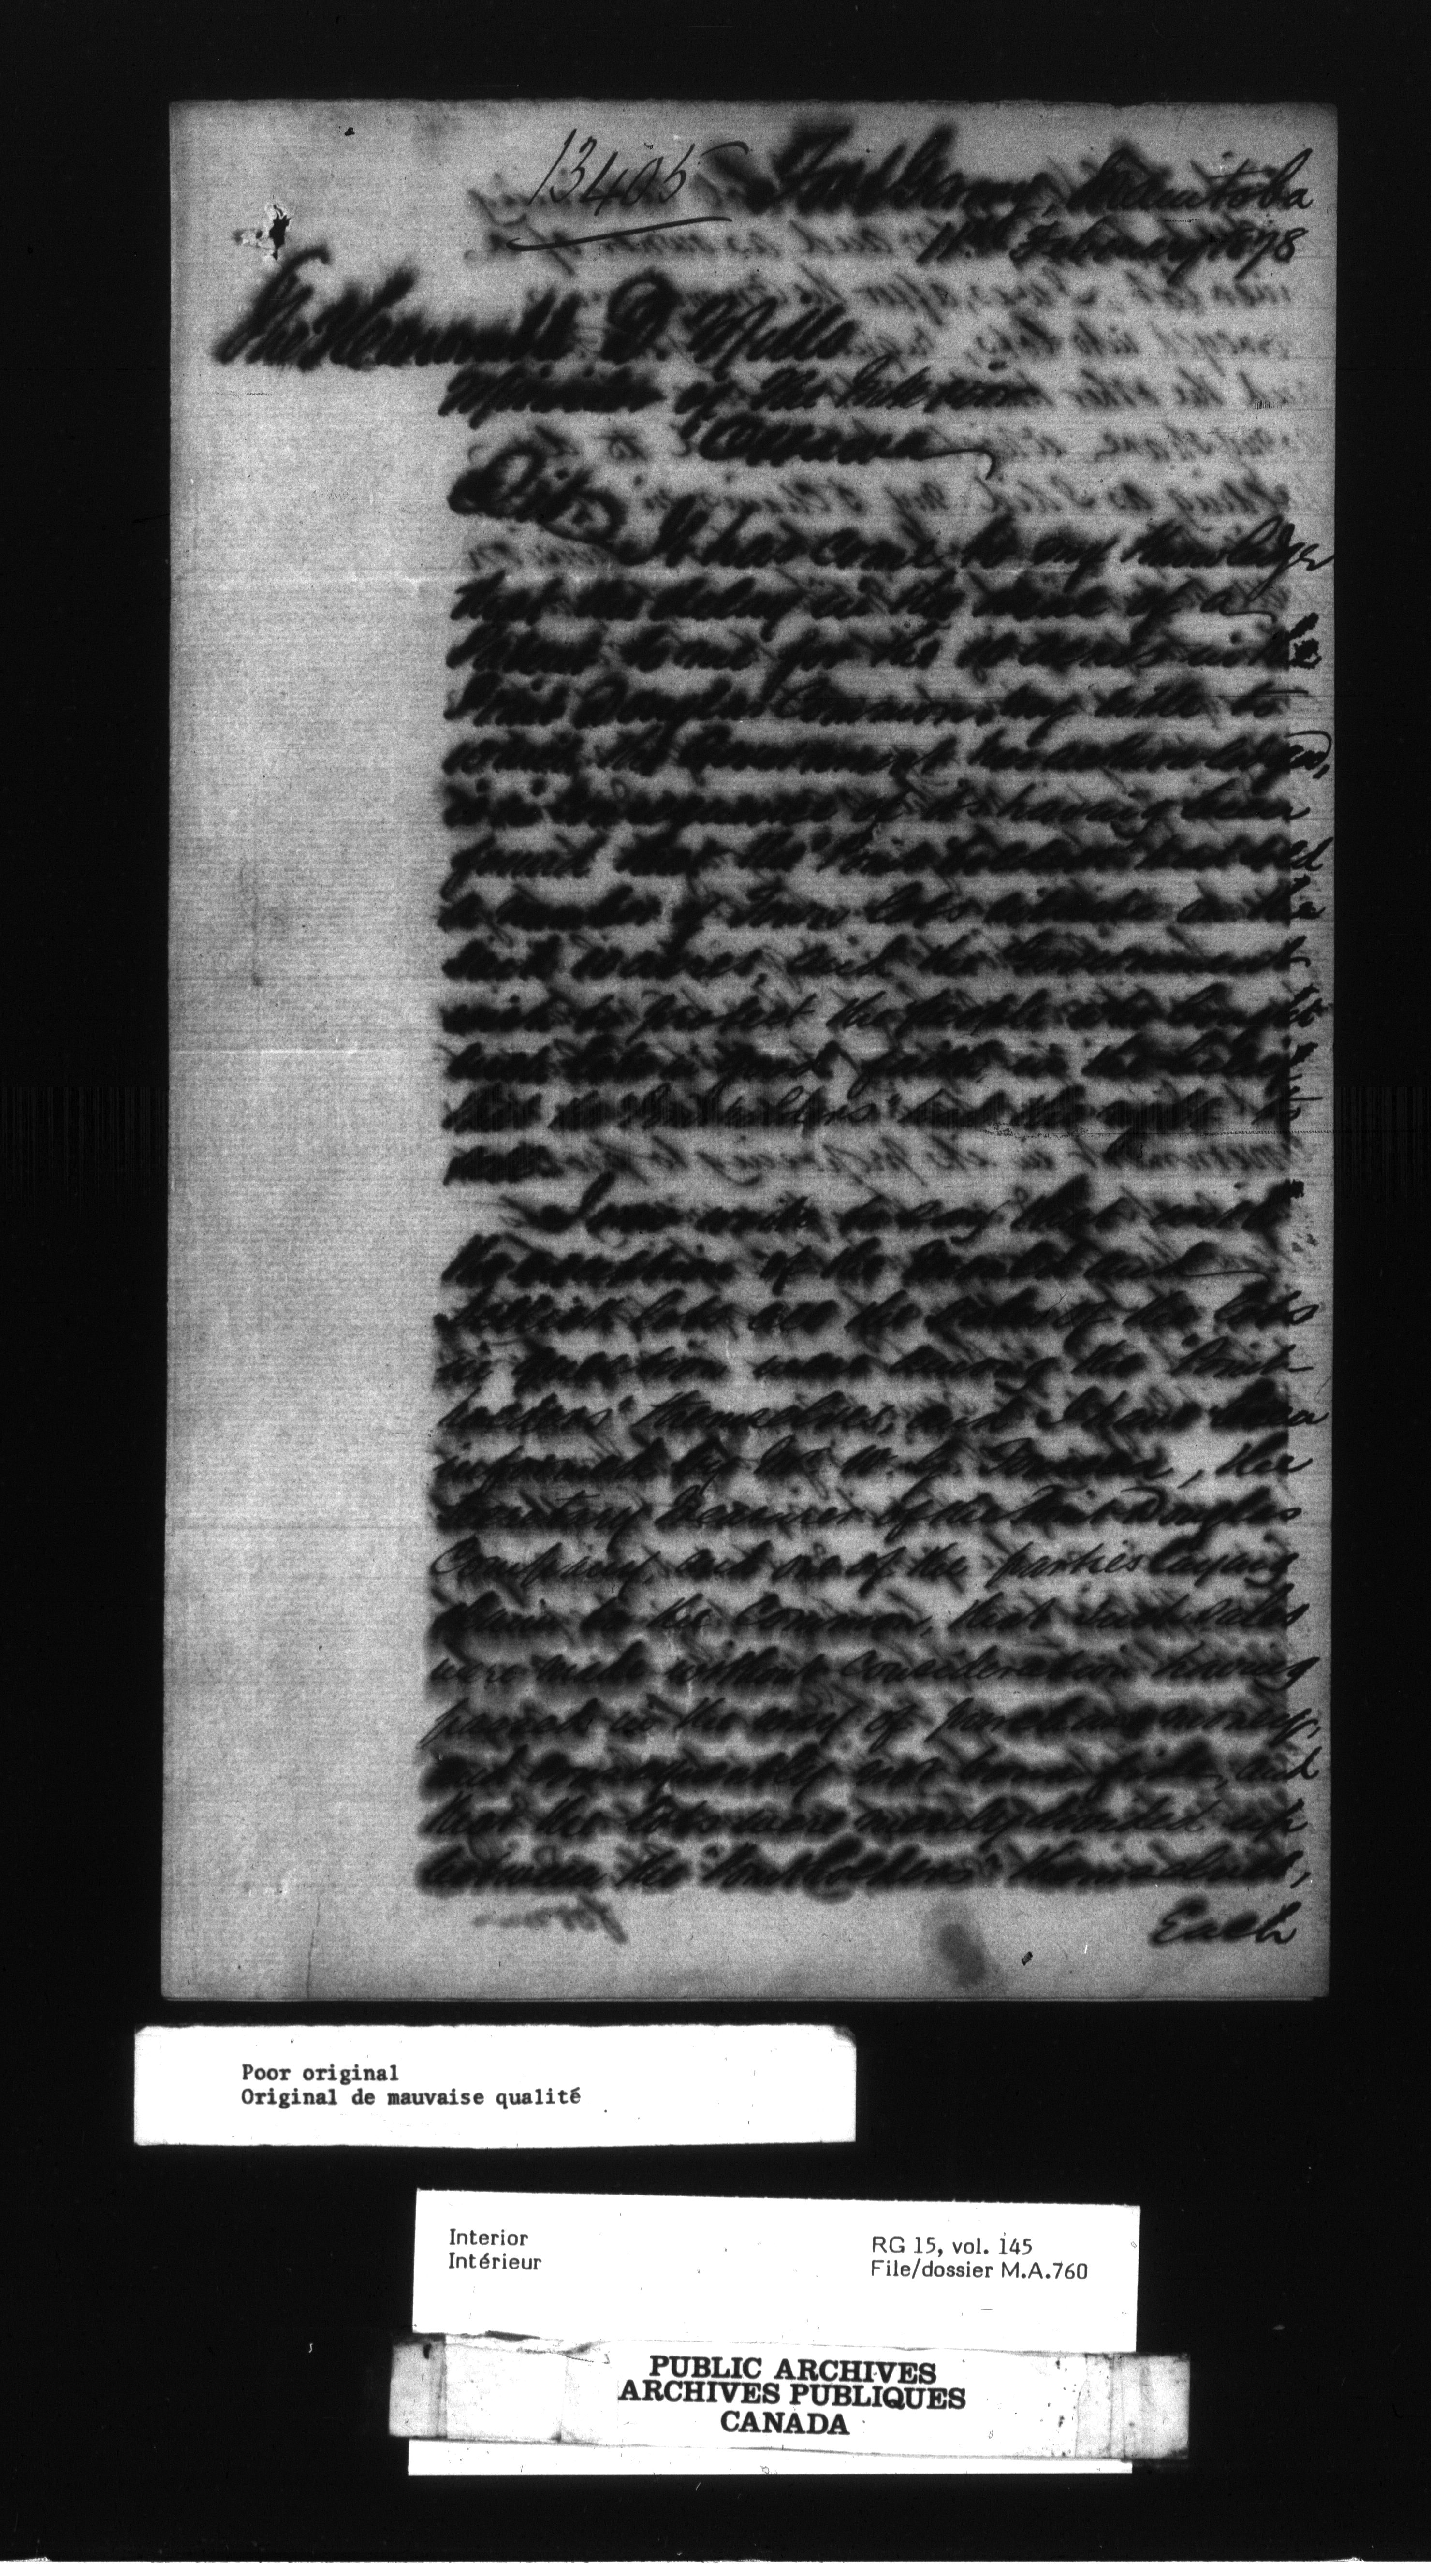 13405
Fort Garry, Manitoba
11th February 1878
The Honourable D. Mills
Minister of the Interior
Ottawa
Sir,
It has come to my knowledge
that the delay in the issue of a
Patent to me for the
Point Douglas Common, my title to
which the Government has acknowledged,
is in consequence of its having been
found that the "Pointholders" had sold
a number of Town lots situate on the
and the Government
wish to protect the people who bought
such lots in good faith in the belief
that the "Pointholders" had the right to
sell.
I now write to say that with
the exception of the
lots all the sales of the lots
in question were among the "Point
holders" themselves, and I have been
informed by Mr. W. G. Fonseca, the
Secretary Treasurer of the Point Douglas
Company, and one of the parties laying
claim to the Common, that such sales
were made without consideration having
passed in the way of purchase money,
and consequently not bona fide, and
that the lots were merely divided up
between the "Pointholders" themselves,
Each
Poor original
Original de mauvaise qualité
Interior
Intérieur
RG 15, vol. 145
File/dossier M.A.760
PUBLIC ARCHIVES
ARCHIVES PUBLIQUES
CANADA